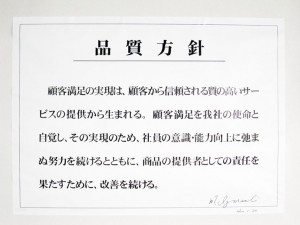 品質方針
顧客満足の実現は、顧客から信頼される質の高いサー
ビスの提供から生まれる。顧客満足を我社の使命と
自覚し、その実現のため、社員の意識・能力向上に弛ま
ぬ努力を続けるとともに、商品の提供者としての責任を
果たすために、改善を続ける。